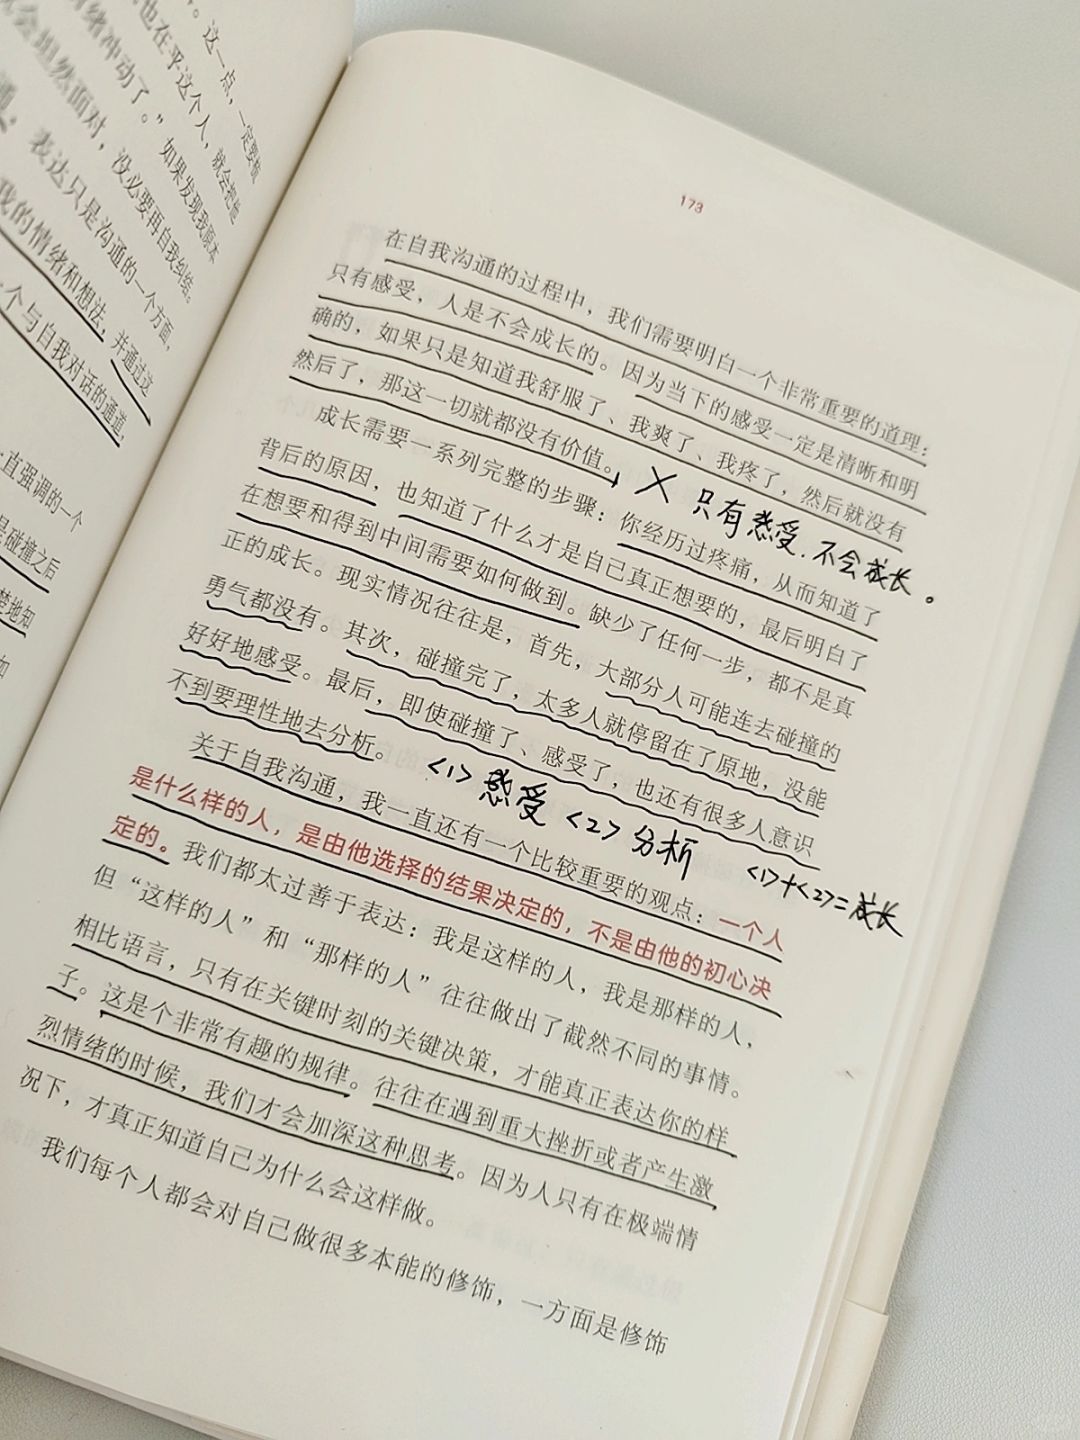 。这一点，一定要梳
也在乎这个人，就会把他
绪冲动了。”如果发现我原本
就会坦然面对，没必要再自我纠结。
通：表达只是沟通的一个方面，
我的情绪和想法，并通过这
个与自我对话的通道，
直强调的一个
是碰撞之后
楚地知
如
173
在自我沟通的过程中，我们需要明白一个非常重要的道理：
只有感受，人是不会成长的。因为当下的感受一定是清晰和明
确的，如果只是知道我舒服了、我爽了、我疼了，然后就没有
然后了，那这一切就都没有价值。
× 只有感受.不会成长。
成长需要一系列完整的步骤：你经历过疼痛，从而知道了
背后的原因，也知道了什么才是自己真正想要的，最后明白了
在想要和得到中间需要如何做到。缺少了任何一步，都不是真
正的成长。现实情况往往是，首先，大部分人可能连去碰撞的
勇气都没有。其次，碰撞完了，太多人就停留在了原地，没能
好好地感受。最后，即使碰撞了、感受了，也还有很多人意识
不到要理性地去分析。
<1>感受 <2>分析 <1>+<2>=成长
关于自我沟通，我一直还有一个比较重要的观点：一个人
是什么样的人，是由他选择的结果决定的，不是由他的初心决
定的。我们都太过善于表达：我是这样的人，我是那样的人，
但“这样的人”和“那样的人”往往做出了截然不同的事情。
相比语言，只有在关键时刻的关键决策，才能真正表达你的样
子。这是个非常有趣的规律。往往在遇到重大挫折或者产生激
烈情绪的时候，我们才会加深这种思考。因为人只有在极端情
况下，才真正知道自己为什么会这样做。
我们每个人都会对自己做很多本能的修饰，一方面是修饰